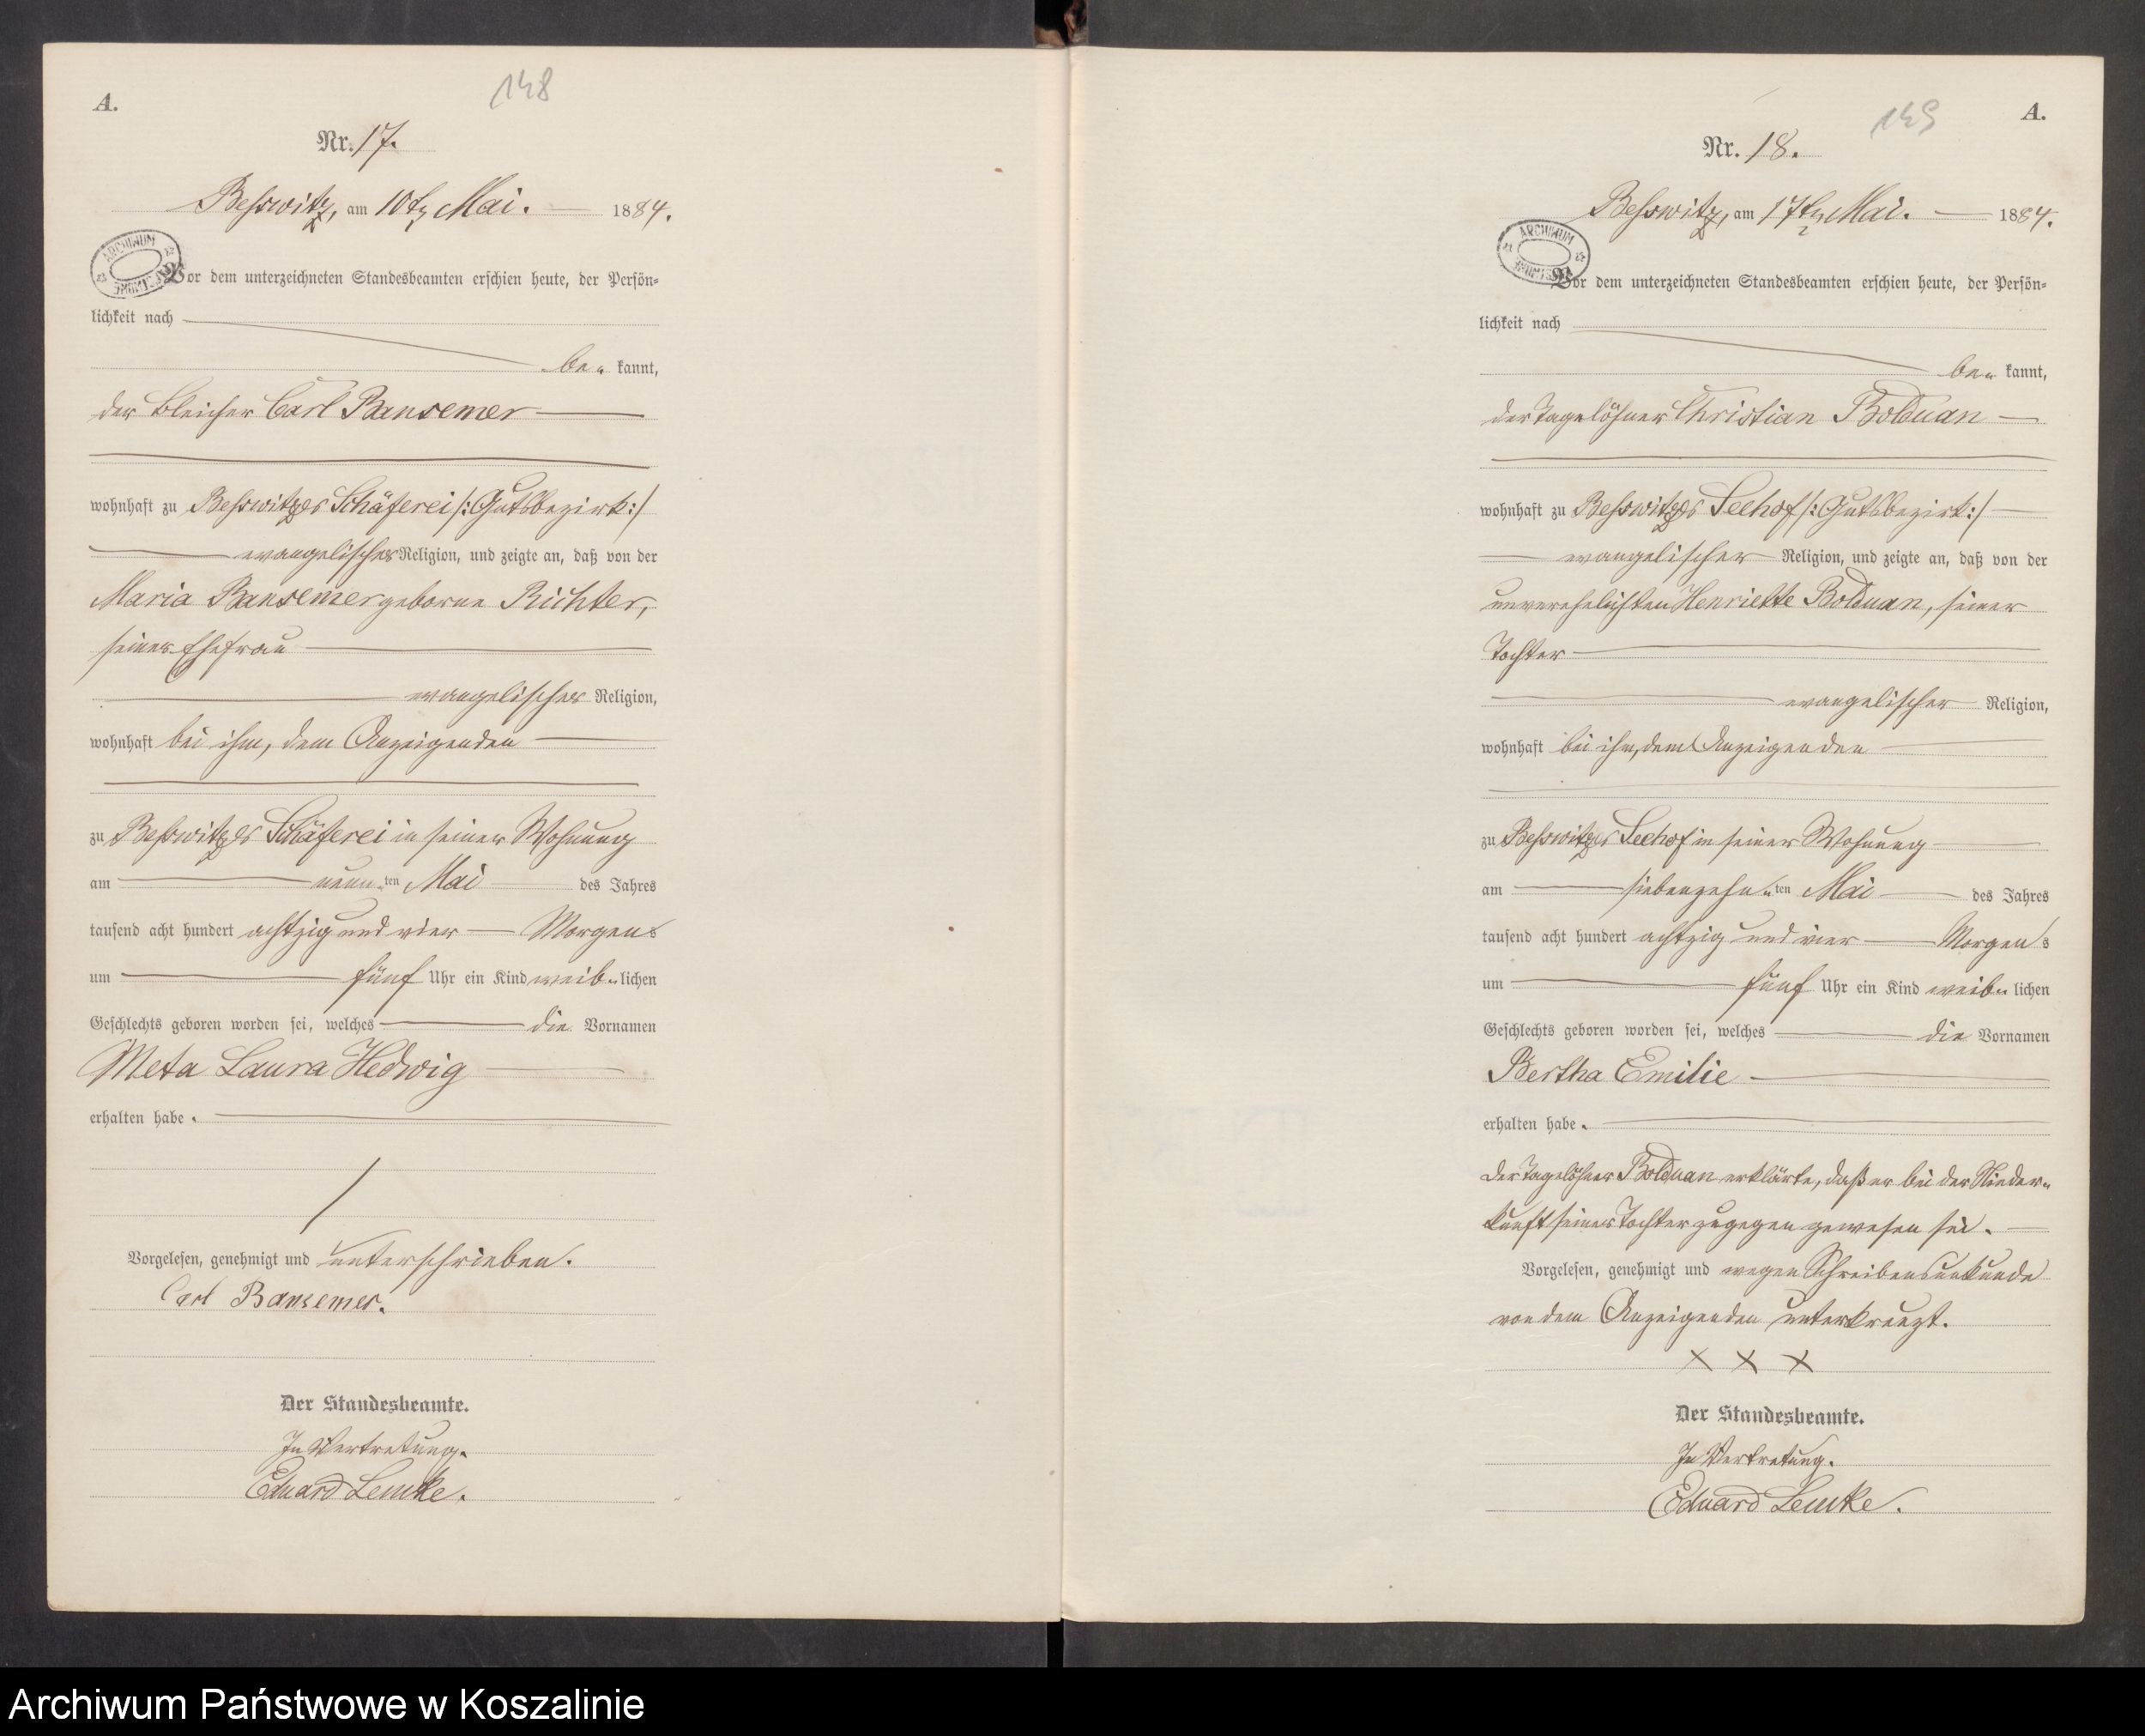 148
A.
Nr. 17.
Beßwitz, am 10ten Mai. 1884.
ARCHIWUM
Vor dem unterzeichneten Standesbeamten erschien heute, der Persön-
lichkeit nach
be- kannt,
der Bleicher Carl Bansemer
wohnhaft zu Beßwitzer Schäferei /: Gutsbezirk :/
evangelischer Religion, und zeigte an, daß von der
Maria Bansemer geborne Richter,
seiner Ehefrau
evangelischer Religion,
wohnhaft bei ihm, dem Anzeigenden
zu Beßwitzer Schäferei in seiner Wohnung
am neun-ten Mai des Jahres
tausend acht hundert achtzig und vier Morgens
um fünf Uhr ein Kind weib-lichen
Geschlechts geboren worden sei, welches die Vornamen
Meta Laura Hedwig
erhalten habe.
Vorgelesen, genehmigt und unterschrieben.
Carl Bansemer.
Der Standesbeamte.
In Vertretung.
Eduard Lemke.
149
A.
Nr. 18.
Beßwitz, am 17ten Mai. 1884.
ARCHIWUM
Vor dem unterzeichneten Standesbeamten erschien heute, der Persön-
lichkeit nach
be- kannt,
der Tagelöhner Christian Bolduan
wohnhaft zu Beßwitzer Seehof /: Gutsbezirk :/
evangelischer Religion, und zeigte an, daß von der
unverehelichten Henriette Bolduan, seiner
Tochter
evangelischer Religion,
wohnhaft bei ihm, dem Anzeigenden
zu Beßwitzer Seehof in seiner Wohnung
am siebenzehn-ten Mai des Jahres
tausend acht hundert achtzig und vier Morgens
um fünf Uhr ein Kind weib-lichen
Geschlechts geboren worden sei, welches die Vornamen
Bertha Emilie
erhalten habe.
Der Tagelöhner Bolduan erklärte, daß er bei der Nieder-
kunft seiner Tochter zugegen gewesen sei.
Vorgelesen, genehmigt und wegen Schreibensunkunde
von dem Anzeigenden unterkreuzt.
X X X
Der Standesbeamte.
In Vertretung.
Eduard Lemke.
Archiwum Państwowe w Koszalinie